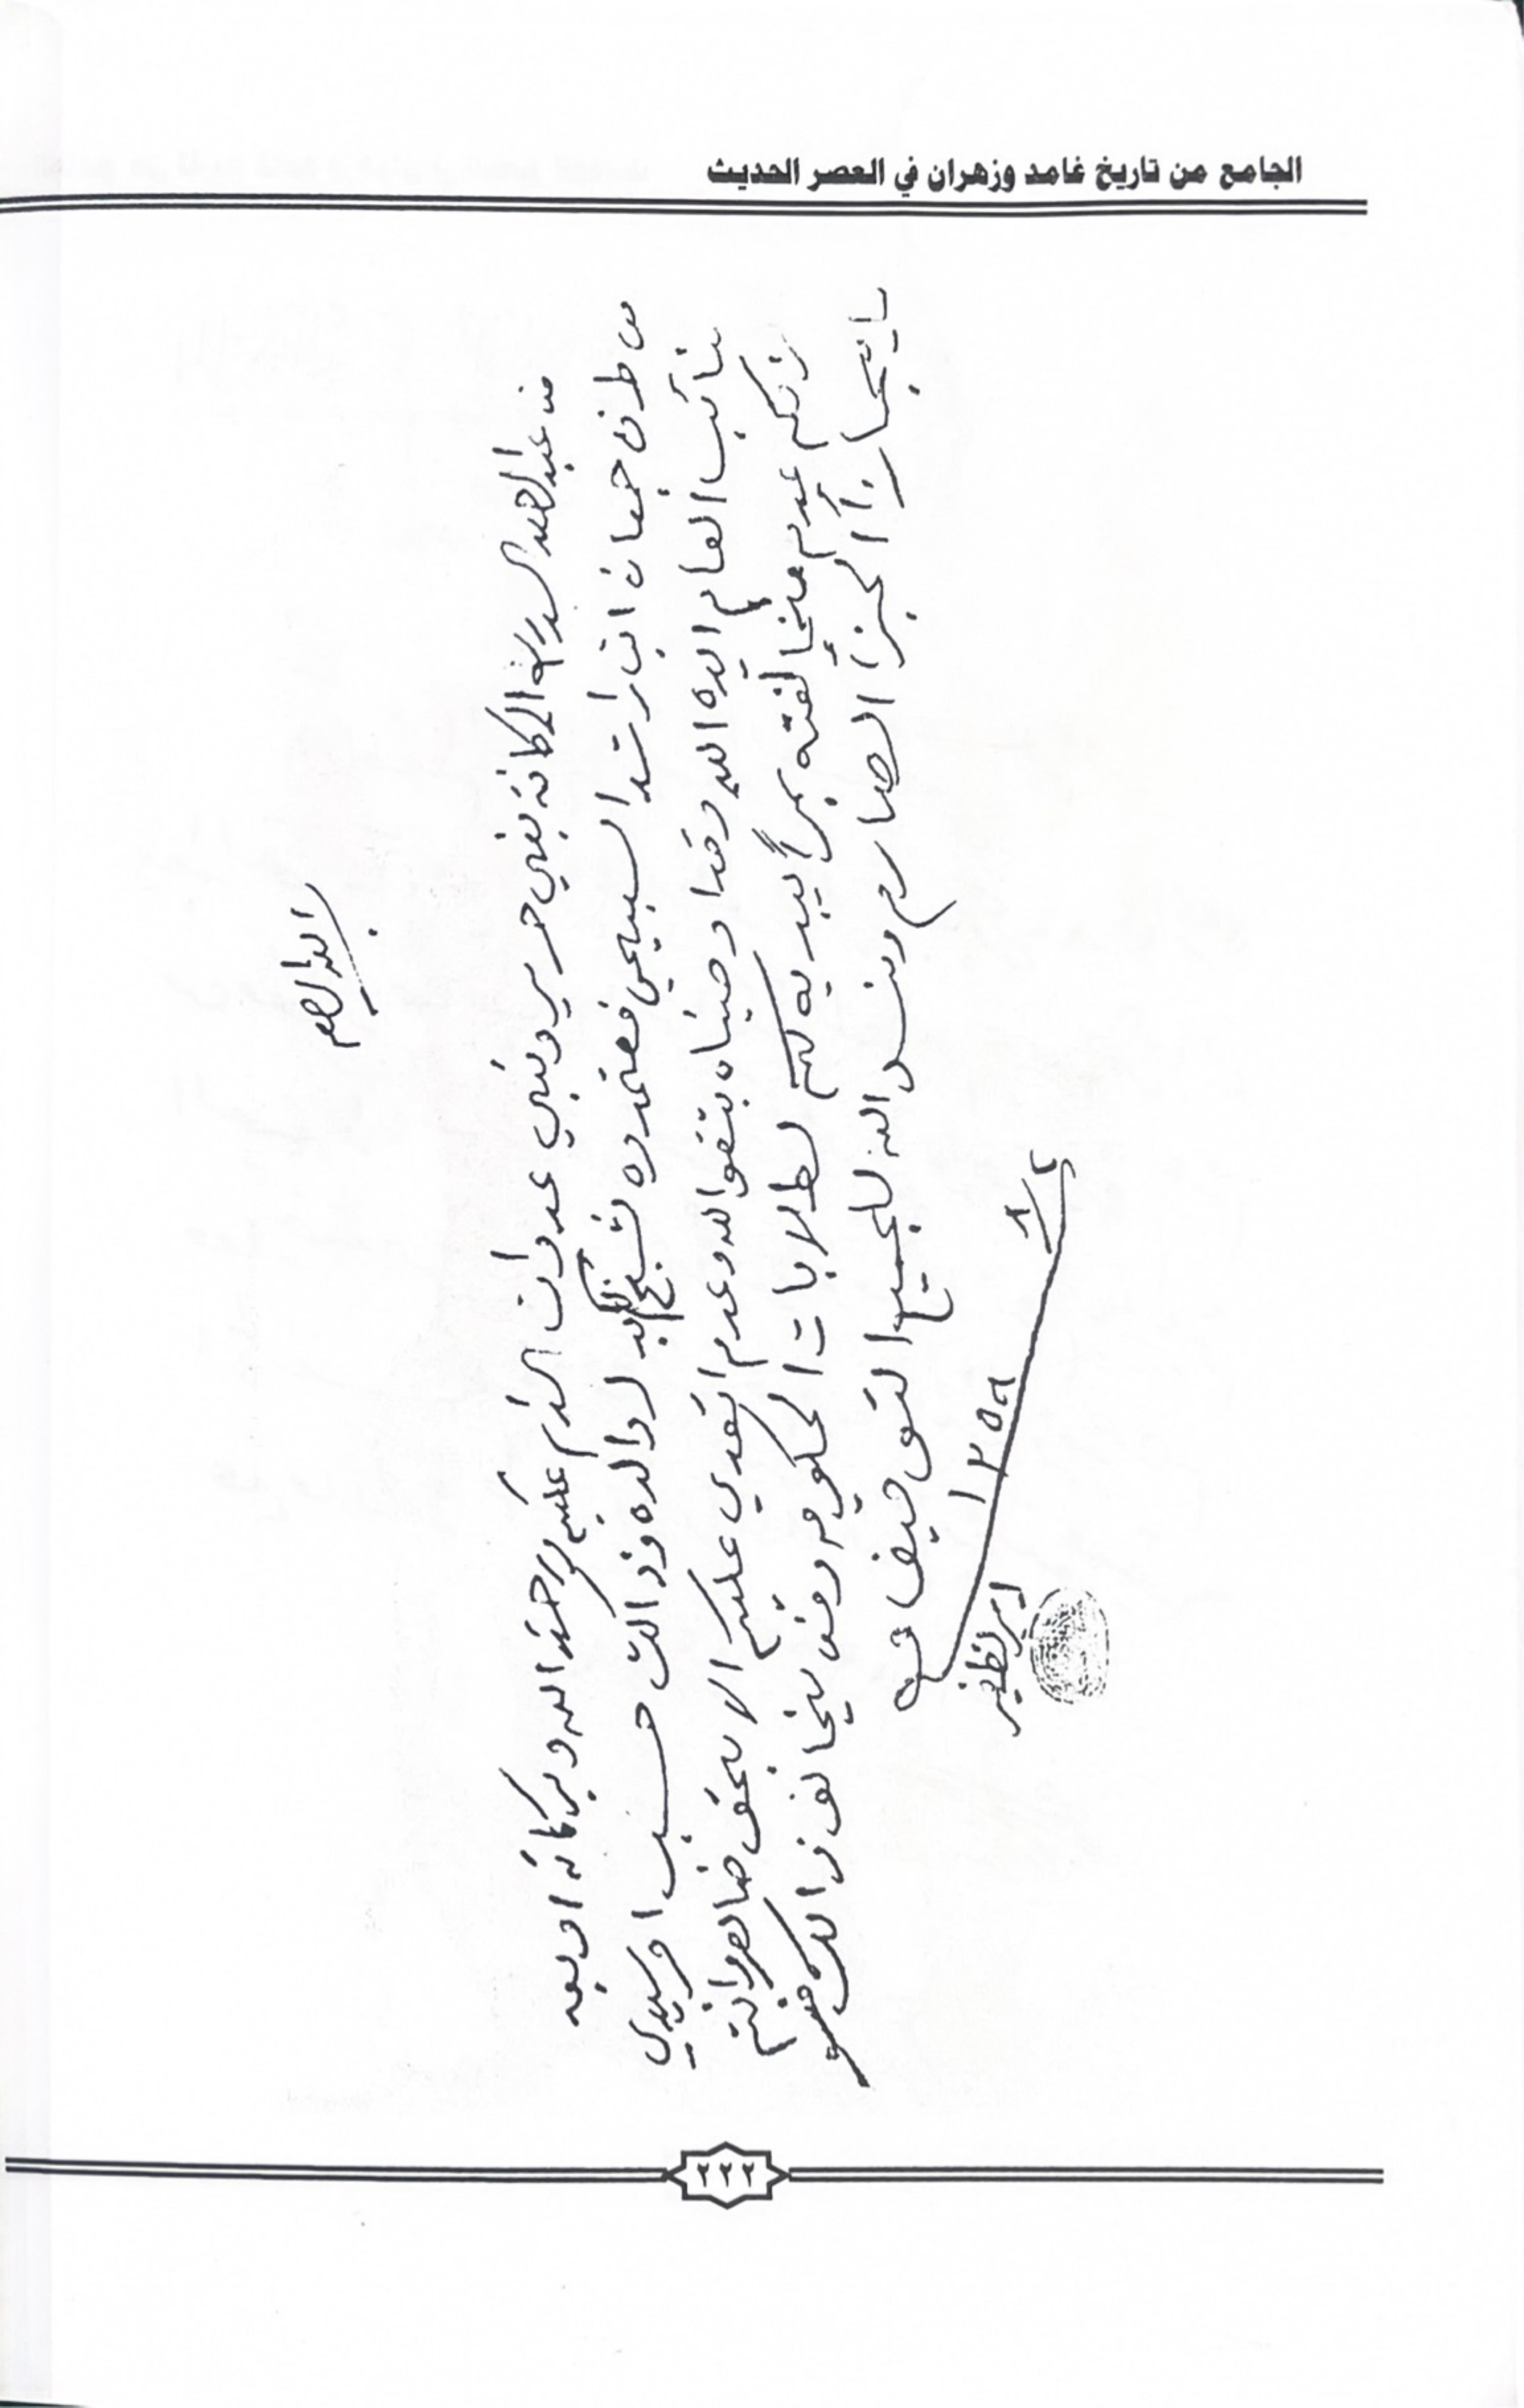 الجامع من تاريخ غامد وزهران في العصر الحديث
من عبدالله السديري الى كافة بني حرير وبني عدوان السلام عليكم ورحمة الله وبركاته وبعد
من طرف جمعان ابن راشد السبيحي فعتمدوه شيخ لكم بد لوالده وذالك حسب امر سيدي
نائب العام ايده الله وقدا وصيناه بتقوا الله وعدم اتعدي عليكم الا بحق وانتم
نذركم عدم مخالفته بمرأ يبديه لكم لطلابات الحكومه ومن يخالف ذالك
يجازا الجزا الصارم ونسئل الله للجميع التوفيق
١٣٥٩
امير الظفير
٢٢٢